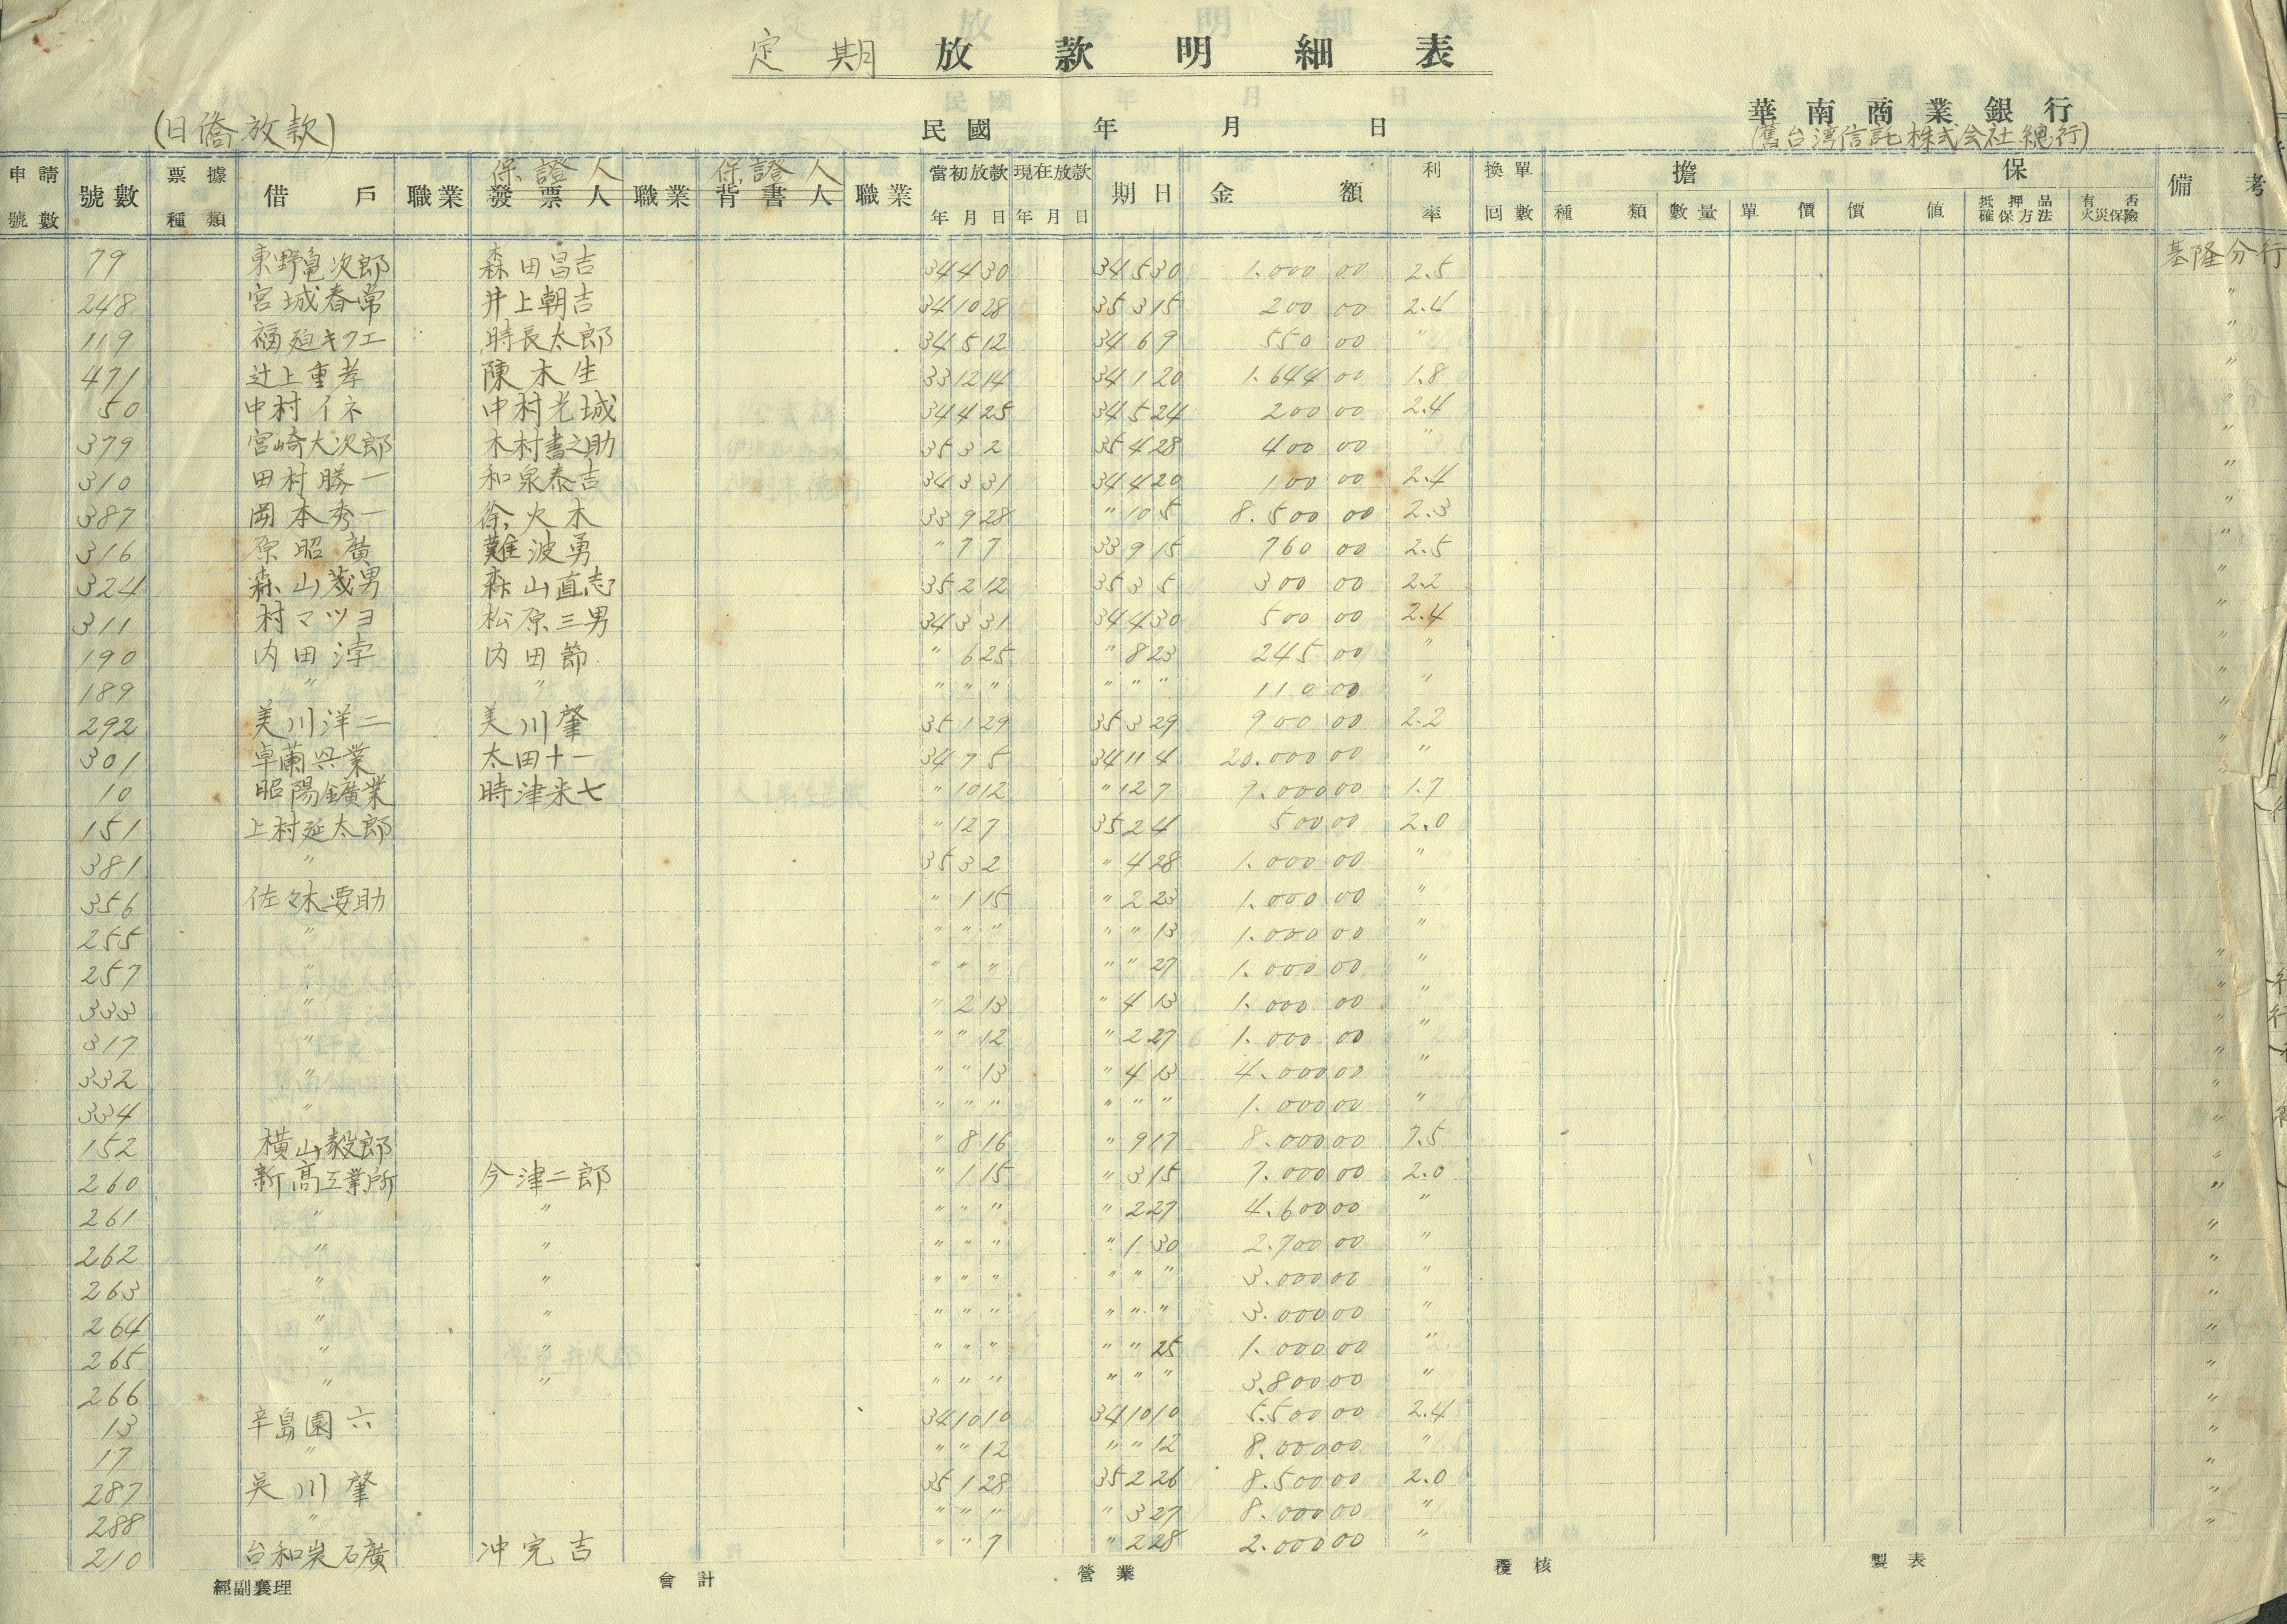 定期放款明細表
華南商業銀行
(日僑放款)
民國 年 月 日
(舊台湾信託株式会社總行)
申請號數 號數 票據種類 借戶 職業 保證人 發票人 職業 保證人 背書人 職業 當初放款 年月日 現在放款 年月日 期日 金額 利率 換單回數 擔保 種類 數量 單價 價值 抵押品確保方法 有否火災保險 備考
79 東野亀次郎 森田昌吉 34 4 30 34 5 30 1.000 00 2.5 基隆分行
248 宮城春常 井上朝吉 34 10 28 35 3 15 200 00 2.4 〃
119 福廸キクエ 時長太郎 34 5 12 34 6 9 550 00 〃 〃
471 辻上重孝 陳木生 33 12 14 34 1 20 1.644 00 1.8 〃
50 中村イネ 中村光城 34 4 25 34 5 24 200 00 2.4 〃
379 宮崎大次郎 木村書之助 35 3 2 35 4 28 400 00 〃 〃
310 田村勝一 和泉泰吉 34 3 31 34 4 20 100 00 2.4 〃
387 岡本秀一 徐火木 33 9 28 〃 10 5 8.500 00 2.3 〃
316 原昭廣 難波勇 〃 7 7 33 9 15 760 00 2.5 〃
324 森山茂男 森山直志 35 2 12 35 3 5 300 00 2.2 〃
311 村マツヨ 松原三男 34 3 31 34 4 30 500 00 2.4 〃
190 内田浡 内田節 〃 6 25 〃 8 23 245 00 〃 〃
189 〃 〃 〃 〃 〃 〃 〃 〃 110 00 〃 〃
292 美川洋二 美川肇 35 1 29 35 3 29 900 00 2.2 〃
301 卓蘭興業 太田十一 34 7 5 34 11 4 20.000 00 〃 〃
10 昭陽鑛業 時津来七 〃 10 12 〃 12 7 9.000 00 1.7
151 上村延太郎 〃 12 7 35 2 4 500 00 2.0
381 〃 35 3 2 〃 4 28 1.000 00 〃
356 佐々木要助 〃 1 15 〃 2 23 1.000 00 〃
255 〃 〃 〃 〃 〃 〃 13 1.000 00 〃 〃
257 〃 〃 〃 〃 〃 〃 27 1.000 00 〃 〃
333 〃 〃 2 13 〃 4 13 1.000 00 〃 〃
317 〃 〃 〃 12 〃 2 27 1.000 00 〃 〃
332 〃 〃 〃 13 〃 4 13 4.000 00 〃 〃
334 〃 〃 〃 〃 〃 〃 〃 1.000 00 〃 〃
152 横山毅郎 〃 8 16 〃 9 17 8.000 00 7.5 〃
260 新高工業所 今津二郎 〃 1 15 〃 3 15 7.000 00 2.0 〃
261 〃 〃 〃 〃 〃 〃 2 27 4.600 00 〃 〃
262 〃 〃 〃 〃 〃 〃 1 30 2.700 00 〃 〃
263 〃 〃 〃 〃 〃 〃 〃 〃 3.000 00 〃 〃
264 〃 〃 〃 〃 〃 〃 〃 〃 3.000 00 〃 〃
265 〃 〃 〃 〃 〃 〃 〃 25 1.000 00 〃 〃
266 〃 〃 〃 〃 〃 〃 〃 〃 3.800 00 〃 〃
13 辛島園六 34 10 10 34 10 10 5.500 00 2.4 〃
17 〃 〃 〃 12 〃 〃 12 8.000 00 〃 〃
287 吴川肇 35 1 28 35 2 26 8.500 00 2.0 〃
288 〃 〃 〃 〃 〃 3 27 8.000 00 〃 〃
210 台和炭石廣 冲完吉 〃 〃 7 〃 2 28 2.000 00 〃
經副襄理 會計 營業 覆核 製表